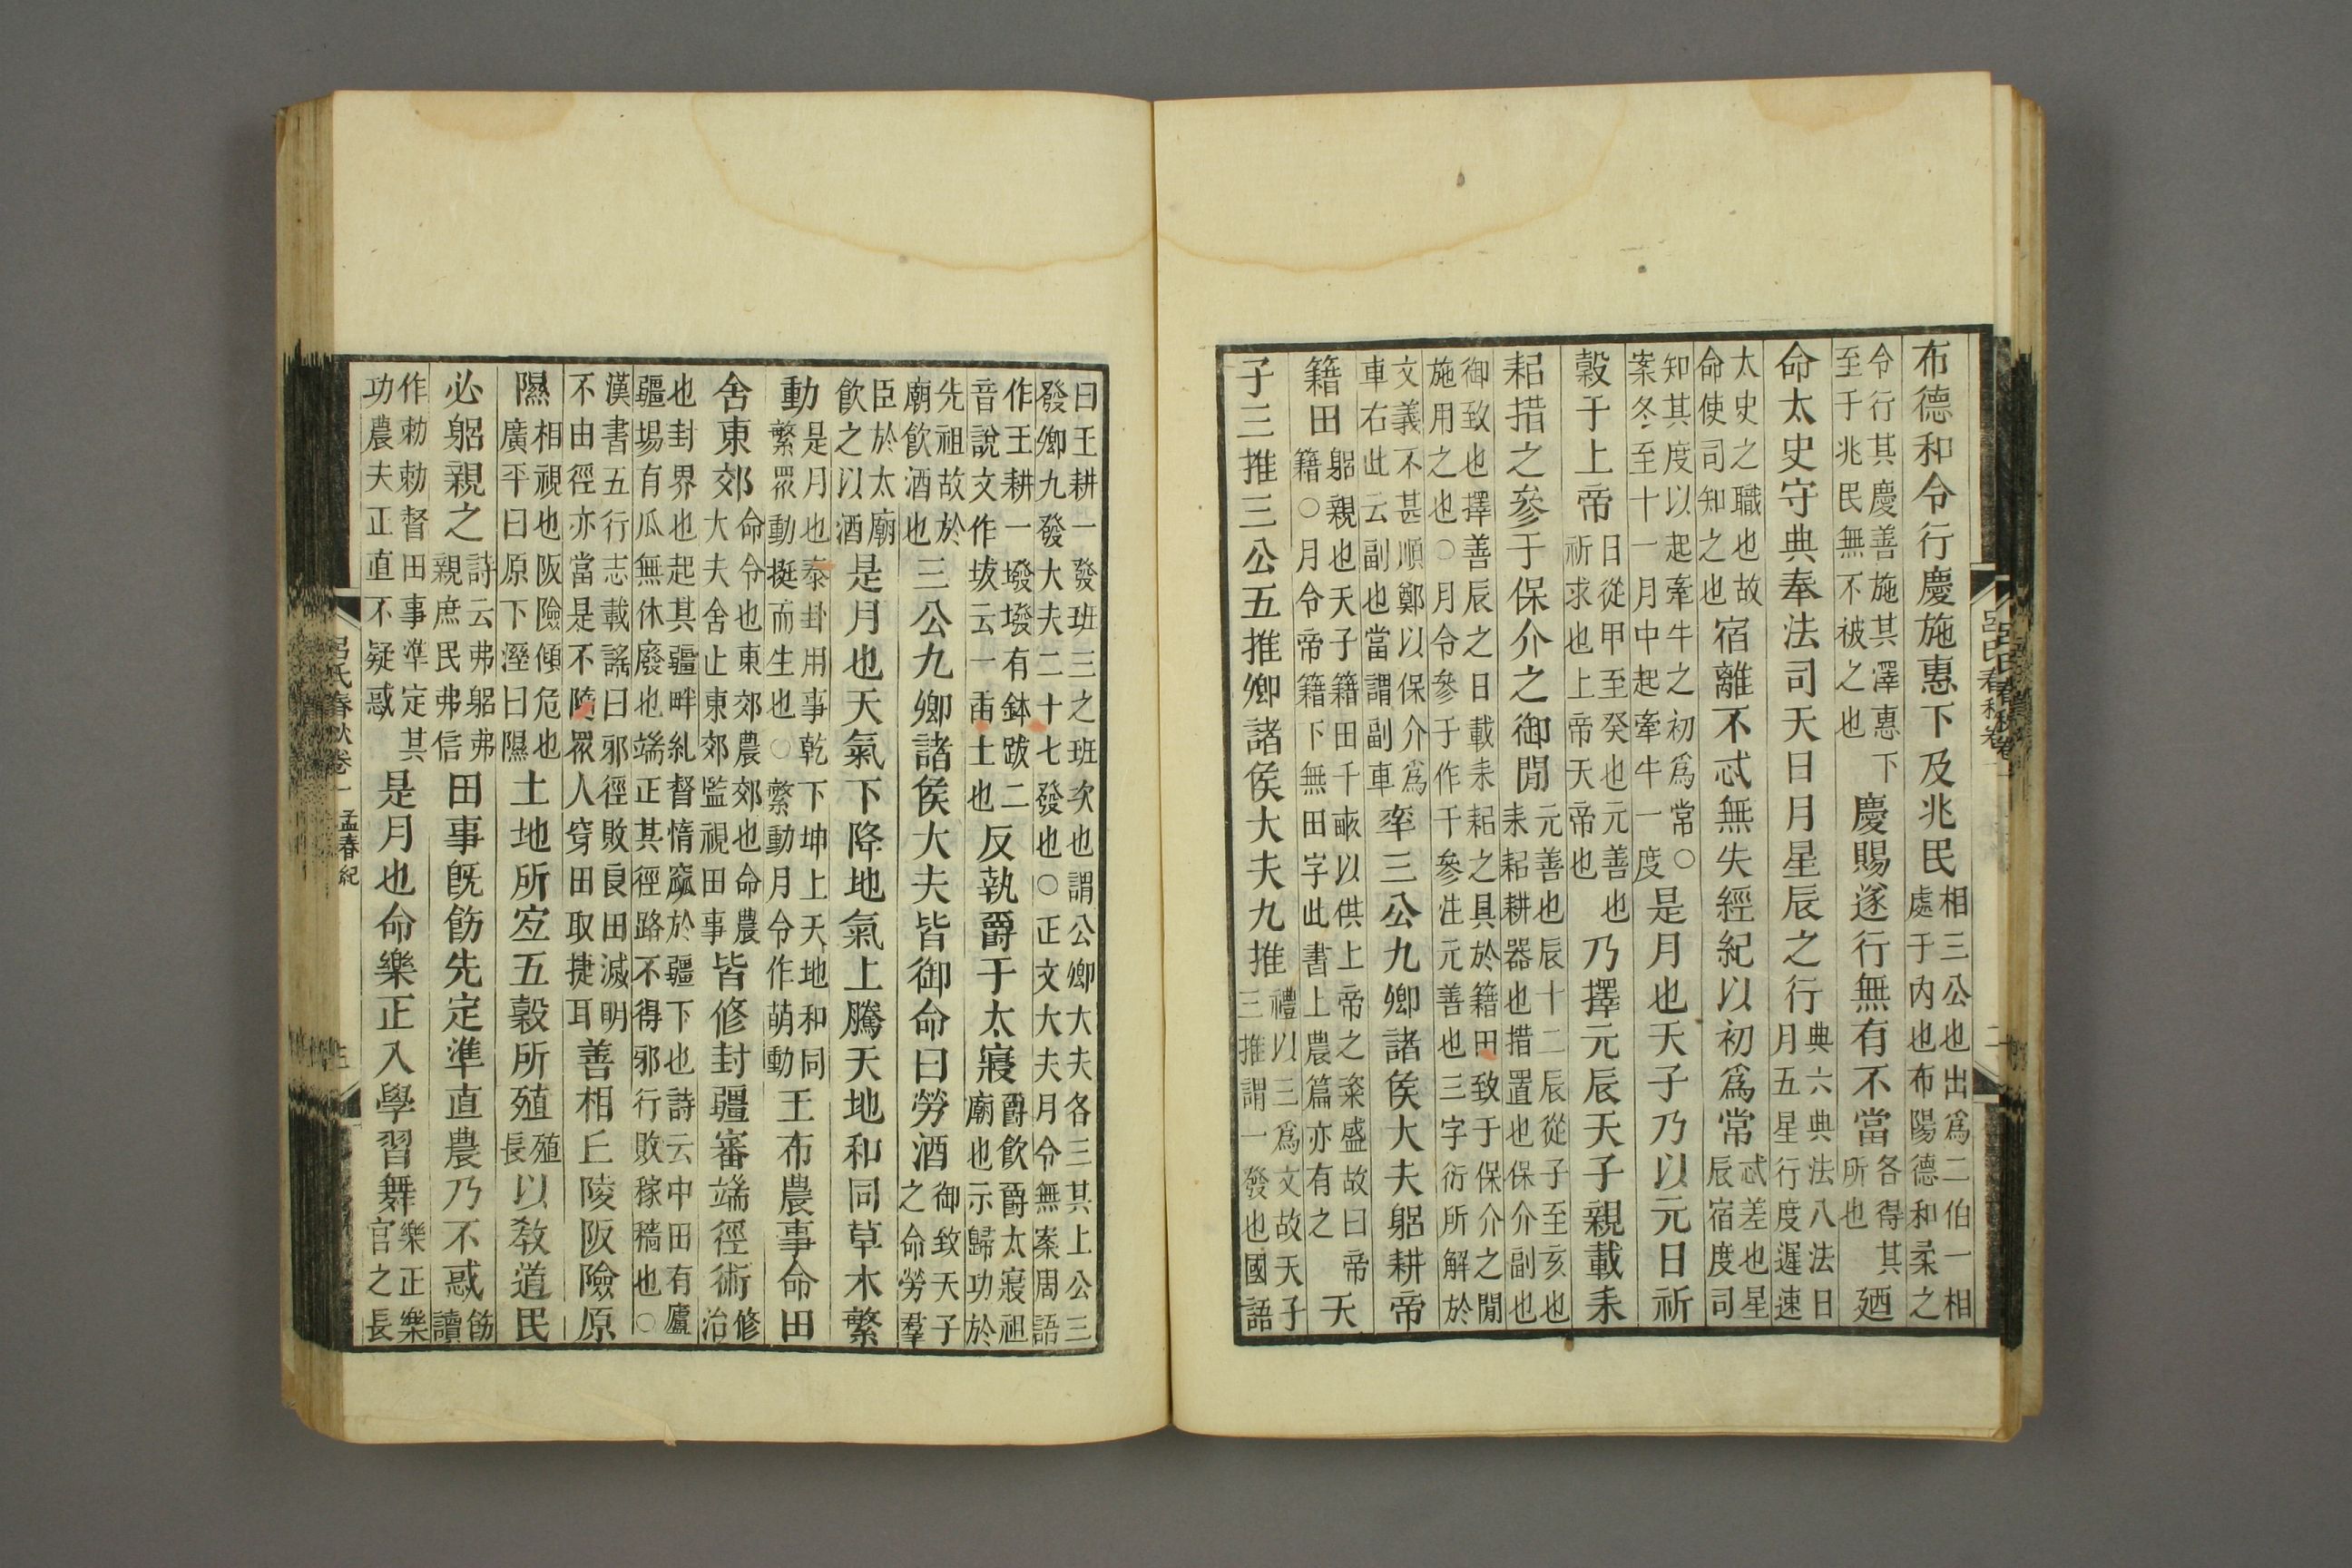 布德和令行慶施惠下及兆民相三公也出爲二伯一相處于内也布陽德和柔之
令行其慶善施其澤惠下至于兆民無不被之也慶賜遂行無有不當各得其所也廼
命太史守典奉法司天日月星辰之行典六典法八法日月五星行度遲速
太史之職也故命使司知之也宿離不忒無失經紀以初爲常忒差也星辰宿度司
知其度以起牽牛之初爲常○案冬至十一月中起牽牛一度是月也天子乃以元日祈
穀于上帝日從甲至癸也元善也祈求也上帝天帝也乃擇元辰天子親載耒
耜措之參于保介之御閒元善也辰十二辰從子至亥也耒耜耕器也措置也保介副也
御致也擇善辰之日載耒耜之具於籍田致于保介之閒施用之也○月令參于作于參注元善也三字衍所解於
文義不甚順鄭以保介爲車右此云副也當謂副車率三公九卿諸侯大夫躬耕帝
籍田躬親也天子籍田千畝以供上帝之粢盛故曰帝籍○月令帝籍下無田字此書上農篇亦有之天
子三推三公五推卿諸侯大夫九推禮以三爲文故天子三推謂一發也國語
曰王耕一發班三之班次也謂公卿大夫各三其上公三發卿九發大夫二十七發也○正文大夫月令無案周語
作王耕一墢墢有鉢跋二音說文作坺云一臿土也反執爵于太寢爵飲爵太寢祖廟也示歸功於
先祖故於廟飲酒也三公九卿諸侯大夫皆御命曰勞酒御致天子之命勞羣
臣於太廟飲之以酒是月也天氣下降地氣上騰天地和同草木繁
動是月也泰卦用事乾下坤上天地和同繁眾動挺而生也○繁動月令作萌動王布農事命田
舍東郊命令也東郊農郊也命農大夫舍止東郊監視田事皆修封疆審端徑術修治
也封界也起其疆畔糺督惰窳於疆下也詩云中田有廬疆埸有瓜無休廢也端正其徑路不得邪行敗稼穡也○
漢書五行志載謠曰邪徑敗良田滅明不由徑亦當是不隨眾人穿田取捷耳善相丘陵阪險原
隰相視也阪險傾危也廣平曰原下溼曰隰土地所宐五穀所殖殖長以敎道民
必躬親之詩云弗躬弗親庶民弗信田事旣飭先定準直農乃不惑飭讀
作勅勅督田事準定其功農夫正直不疑惑是月也命樂正入學習舞樂正樂官之長
呂氏春秋卷一 孟春紀 三